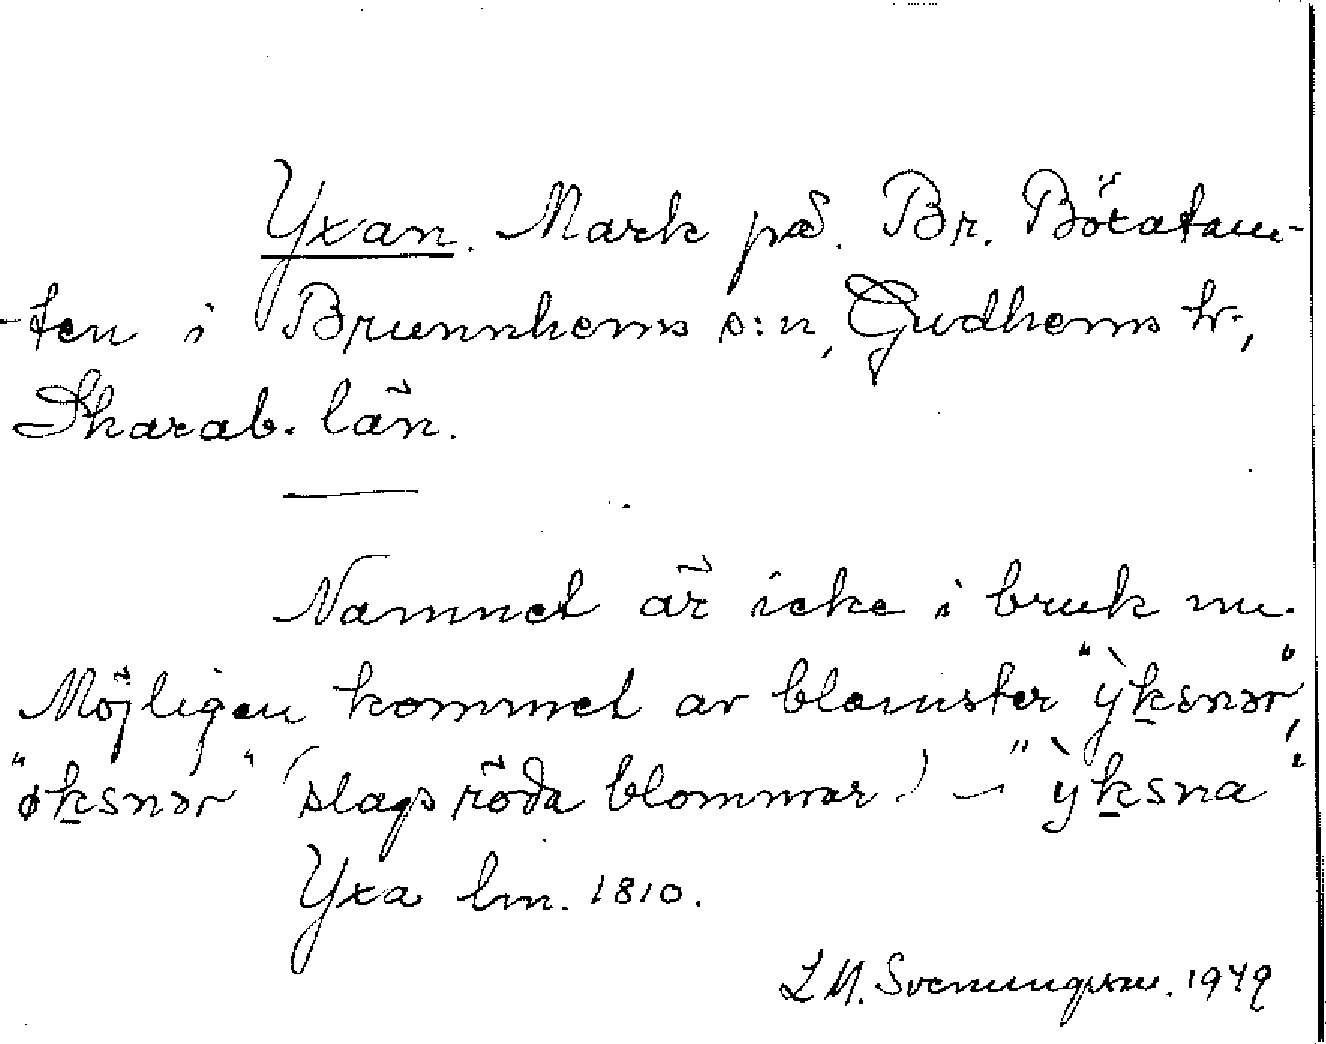 Yxan. Mark på. Br. Böratom-
-ten i Brunnhems s:n, Gudhems hr.,
Skarab. län.
Namnet är icke i bruk nu.
Möjligen kommet av blomster "ỳk̲snər",
"øk̲snər" (slags röda blommar) — "ỳk̲sna"
Yxa lm. 1810.
L M. Svenungsson. 1949